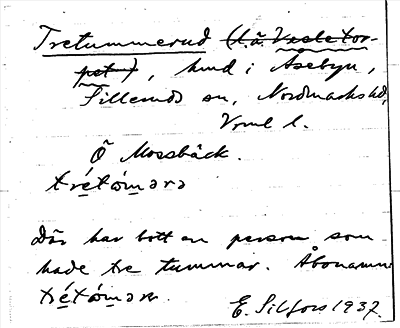 Tretummerud (l.ä. Vesletor-
pet), hmd i Åsebyn,
Sillerud sn, Nordmarks hd,
Vrml l.
Ö Mossbäck.
trétómərə
Där har bott en person som
hade tre tummar. Åbonamn
trétómər.
E. Silfors 1937.